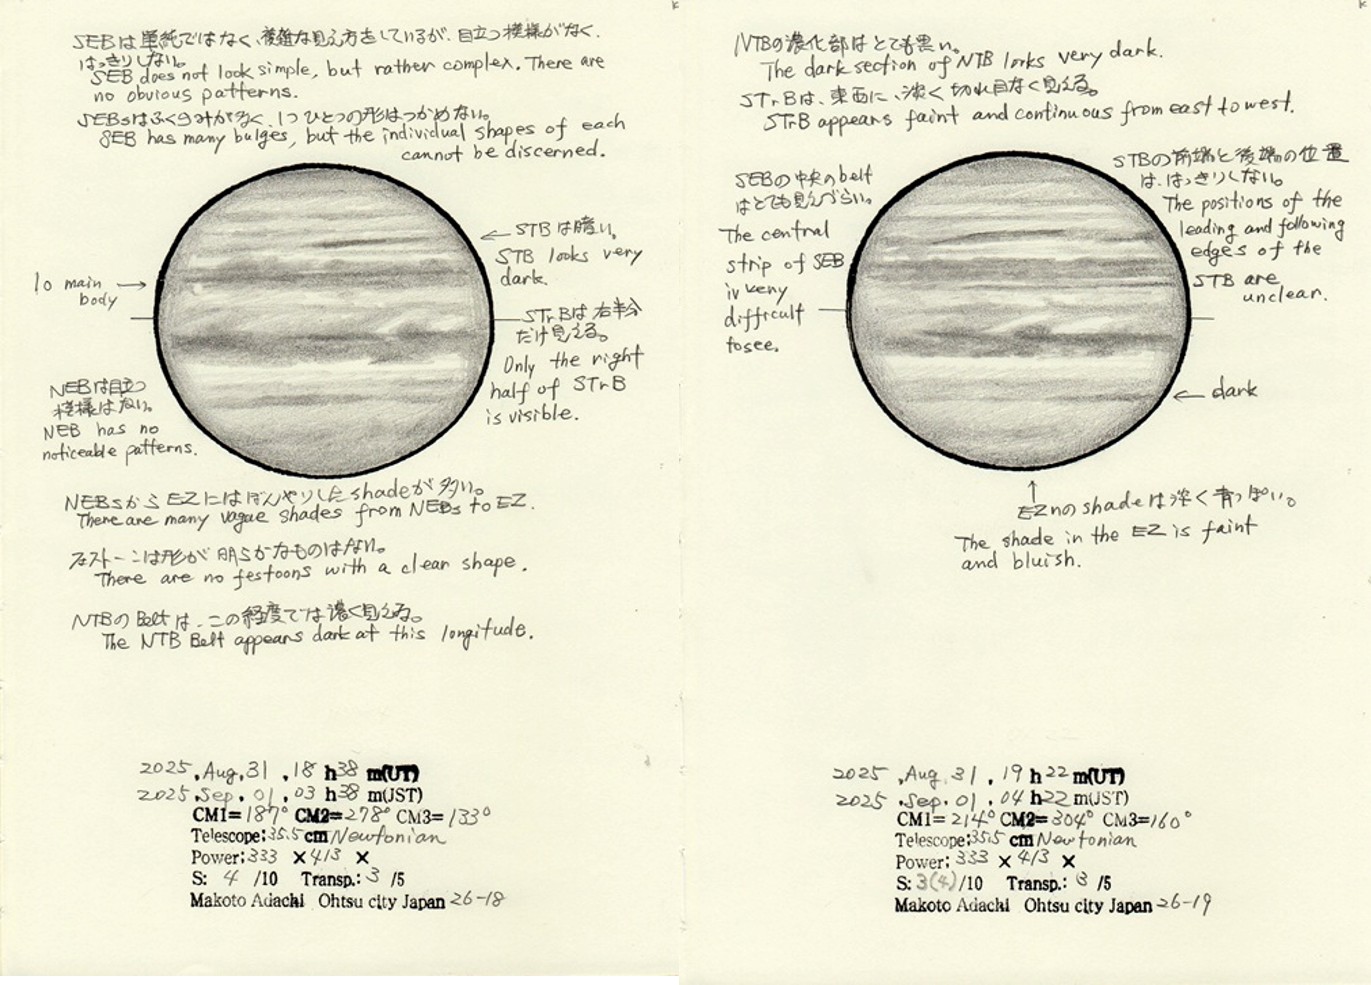 SEBは単純ではなく、複雑な見え方をしているが、目立つ模様がなく、
はっきりしない。
SEB does not look simple, but rather complex. There are
no obvious patterns.
SEBsはふくらみが多く、1つひとつの形はつかめない。
SEB has many bulges, but the individual shapes of each
cannot be discerned.
← STBは暗い。
STB looks very
dark.
Io main →
body
STrBは右半分
だけ見える。
Only the right
half of STrB
is visible.
NEBは目立つ
模様はない。
NEB has no
noticeable patterns.
NEBsからEZにはぼんやりしたshadeが多い。
There are many vague shades from NEBs to EZ.
フェストーンは形が明らかなものはない。
There are no festoons with a clear shape.
NTBのBeltは、この経度では濃く見える。
The NTB Belt appears dark at this longitude.
2025 .Aug.31 .18 h38 m(UT)
2025 .Sep. 01 .03 h38 m(JST)
CM1=187° CM2=278° CM3=133°
Telescope:35.5 cm Newtonian
Power:333 ×413 ×
S: 4 /10 Transp.: 3 /5
Makoto Adachi Ohtsu city Japan 26-18
NTBの濃化部はとても黒い。
The dark section of NTB looks very dark.
STrBは、東西に、淡く切れ目なく見える。
STrB appears faint and continuous from east to west.
SEBの中央のbelt
はとても見えづらい。
The central
strip of SEB
is very
difficult
to see.
STBの前端と後端の位置
は、はっきりしない。
The positions of the
leading and following
edges of the
STB are
unclear.
← dark
↑
EZnのshadeは淡く青っぽい。
The shade in the EZ is faint
and bluish.
2025 .Aug. 31 . 19 h22 m(UT)
2025 .Sep. 01 .04 h22 m(JST)
CM1=214° CM2=304° CM3=160°
Telescope:35.5 cm Newtonian
Power: 333 × 413 ×
S: 3(4) /10 Transp.: 3 /5
Makoto Adachi Ohtsu city Japan 26-19